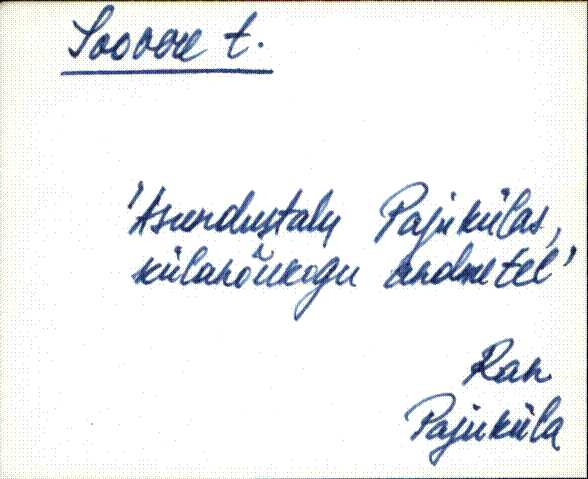 Soovere t.
'Asundustalu Pajukülas,
külanõukogu andmetel'
Ran
Pajuküla